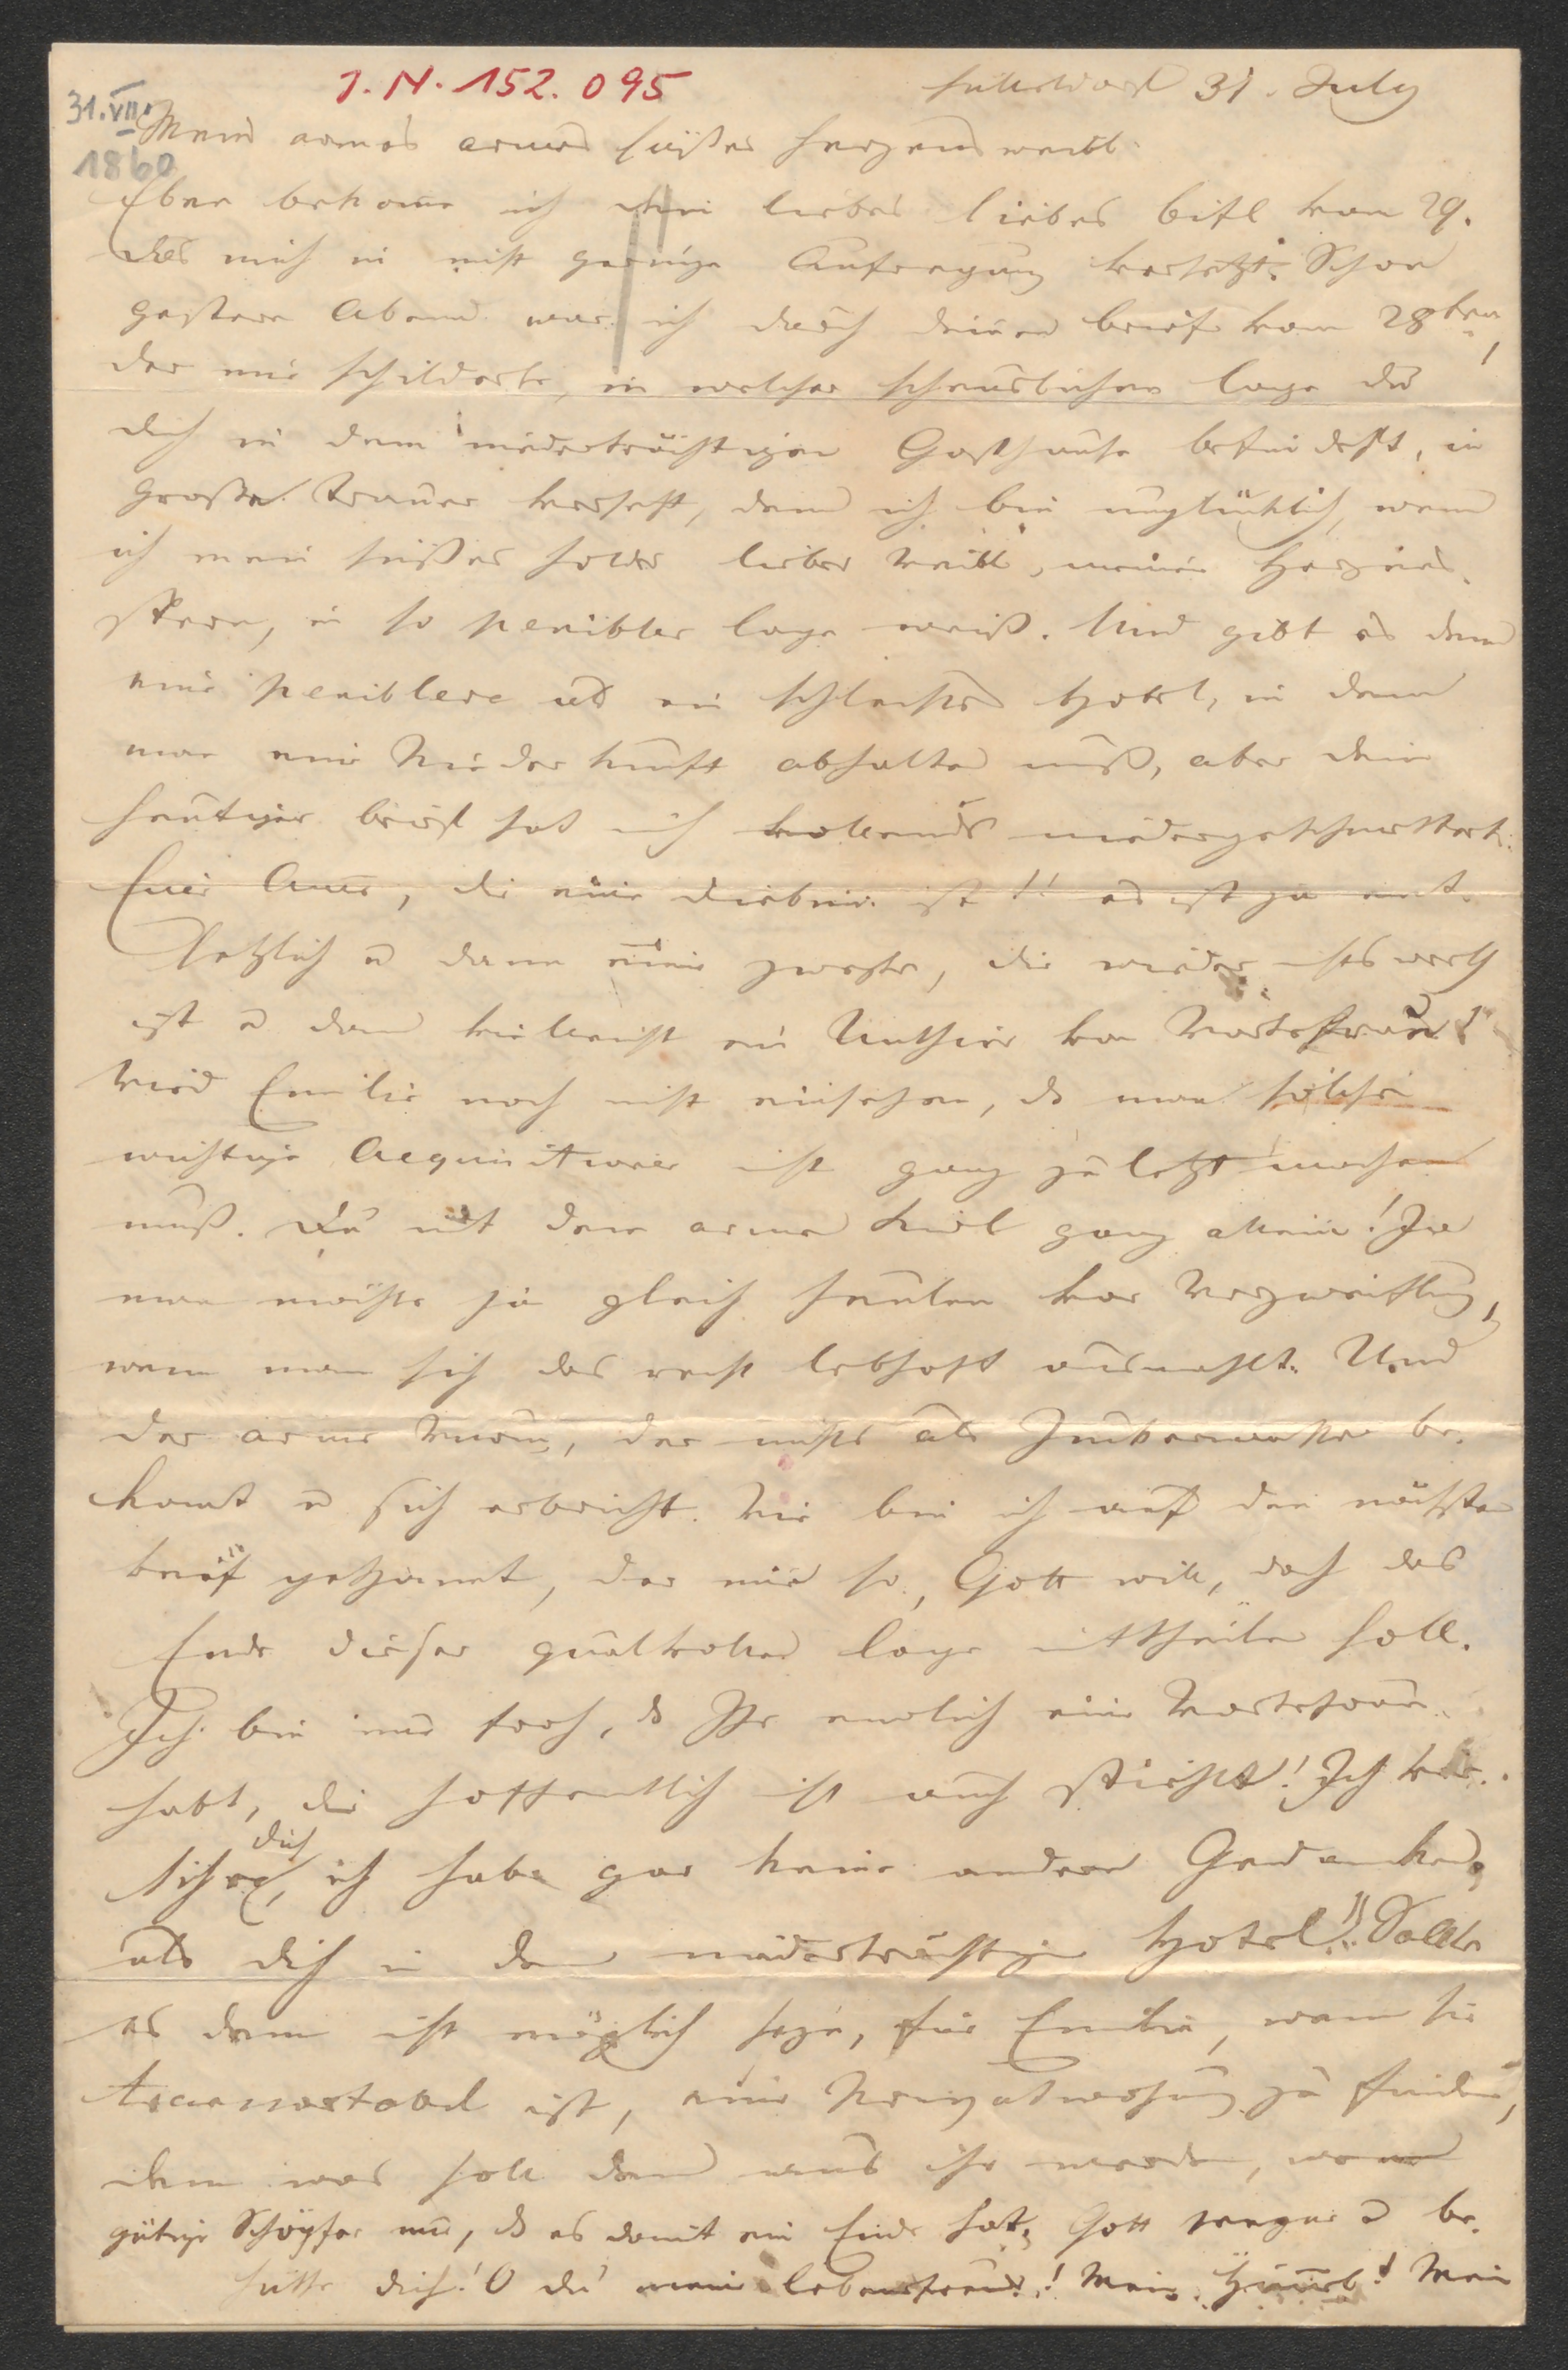 J. N. 152.095
31. VII.
1860
Hütteldorf 31. July
Mein armes armes süßes Herzensweibl.
Eben bekome ich dein liebes liebes bifl vom 29.
das mich in nicht geringe Aufregung versetzt. Schon
gestern Abend war ich durch deinen brief vom 28ten,
der mir schilderte, in welcher scheuslichen lage du
dich in dem niederträchtigen Gasthause befindest, in
große Trauer versetzt, denn ich bin unglücklich, wenn
ich mein süßes holdes liebes Weibl, meinen Herzens
stern, in so penibler lage weiß. Und gibt es denn
eine peniblere als ein schlechtes Hotel, in dem
man eine Niederkunft abhalten muß, aber dein
heutiger brief hat mich vollends niedergeschmettert.
Eine Ame, die eine Diebin ist!! es ist ja ent-
setzlich u dann eine zweite, die wieder nichts werth
ist u dann vielleicht ein Unthier von Wartefrau!
Wird Emilie noch nicht einsehen, dß man solche
wichtige Aequisitionen nicht ganz zuletzt machen
muß. Du mit dem armen Kierl ganz allein! Ja
man möchte ja gleich heulen vor Verzweiflung,
wenn man sich das recht lebhaft ausmahlt. Und
der arme Wurm, der nichts als Zuckerwasser be-
komt u sich erbricht. Wie bin ich auf den nächsten
brief gespannt, der mir so Gott will, doch das
Ende dieser qualvollen lage mittheilen soll.
Ich bin nur froh, dß Ihr endlich eine Wartefrau
habt, die hoffentlich nicht auch stiehlt! Ich ver-
sichre dich, ich habe gar keine andern Gedanken,
als dich in dem niederträchtigen Hotel!! Sollte
es denn nicht möglich seyn, für Emilie, wenn sie
transportabel ist, eine Privatwohnung zu finden,
denn was soll denn aus ihr werden, wenn
gütige Schöpfer nur, dß es damit ein Ende hat. Gott segne u be-
hütte dich! O du meine lebensfreud! Mein ! Mein